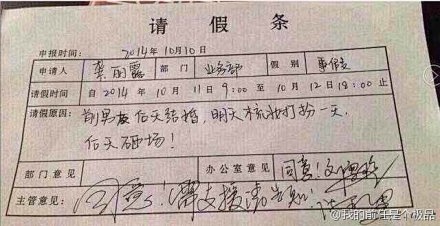 请假条
申报时间: 2014年10月10日
申请人 龚丽露 部门 业务部 假别 事假
请假时间 自2014年10月11日9:00至10月12日18:00止
请假原因: 前男友后天结婚,明天梳妆打扮一天,
后天砸场!
部门意见 办公室意见 同意!
主管意见: 同意!需支援请告知!
@我的前任是个极品